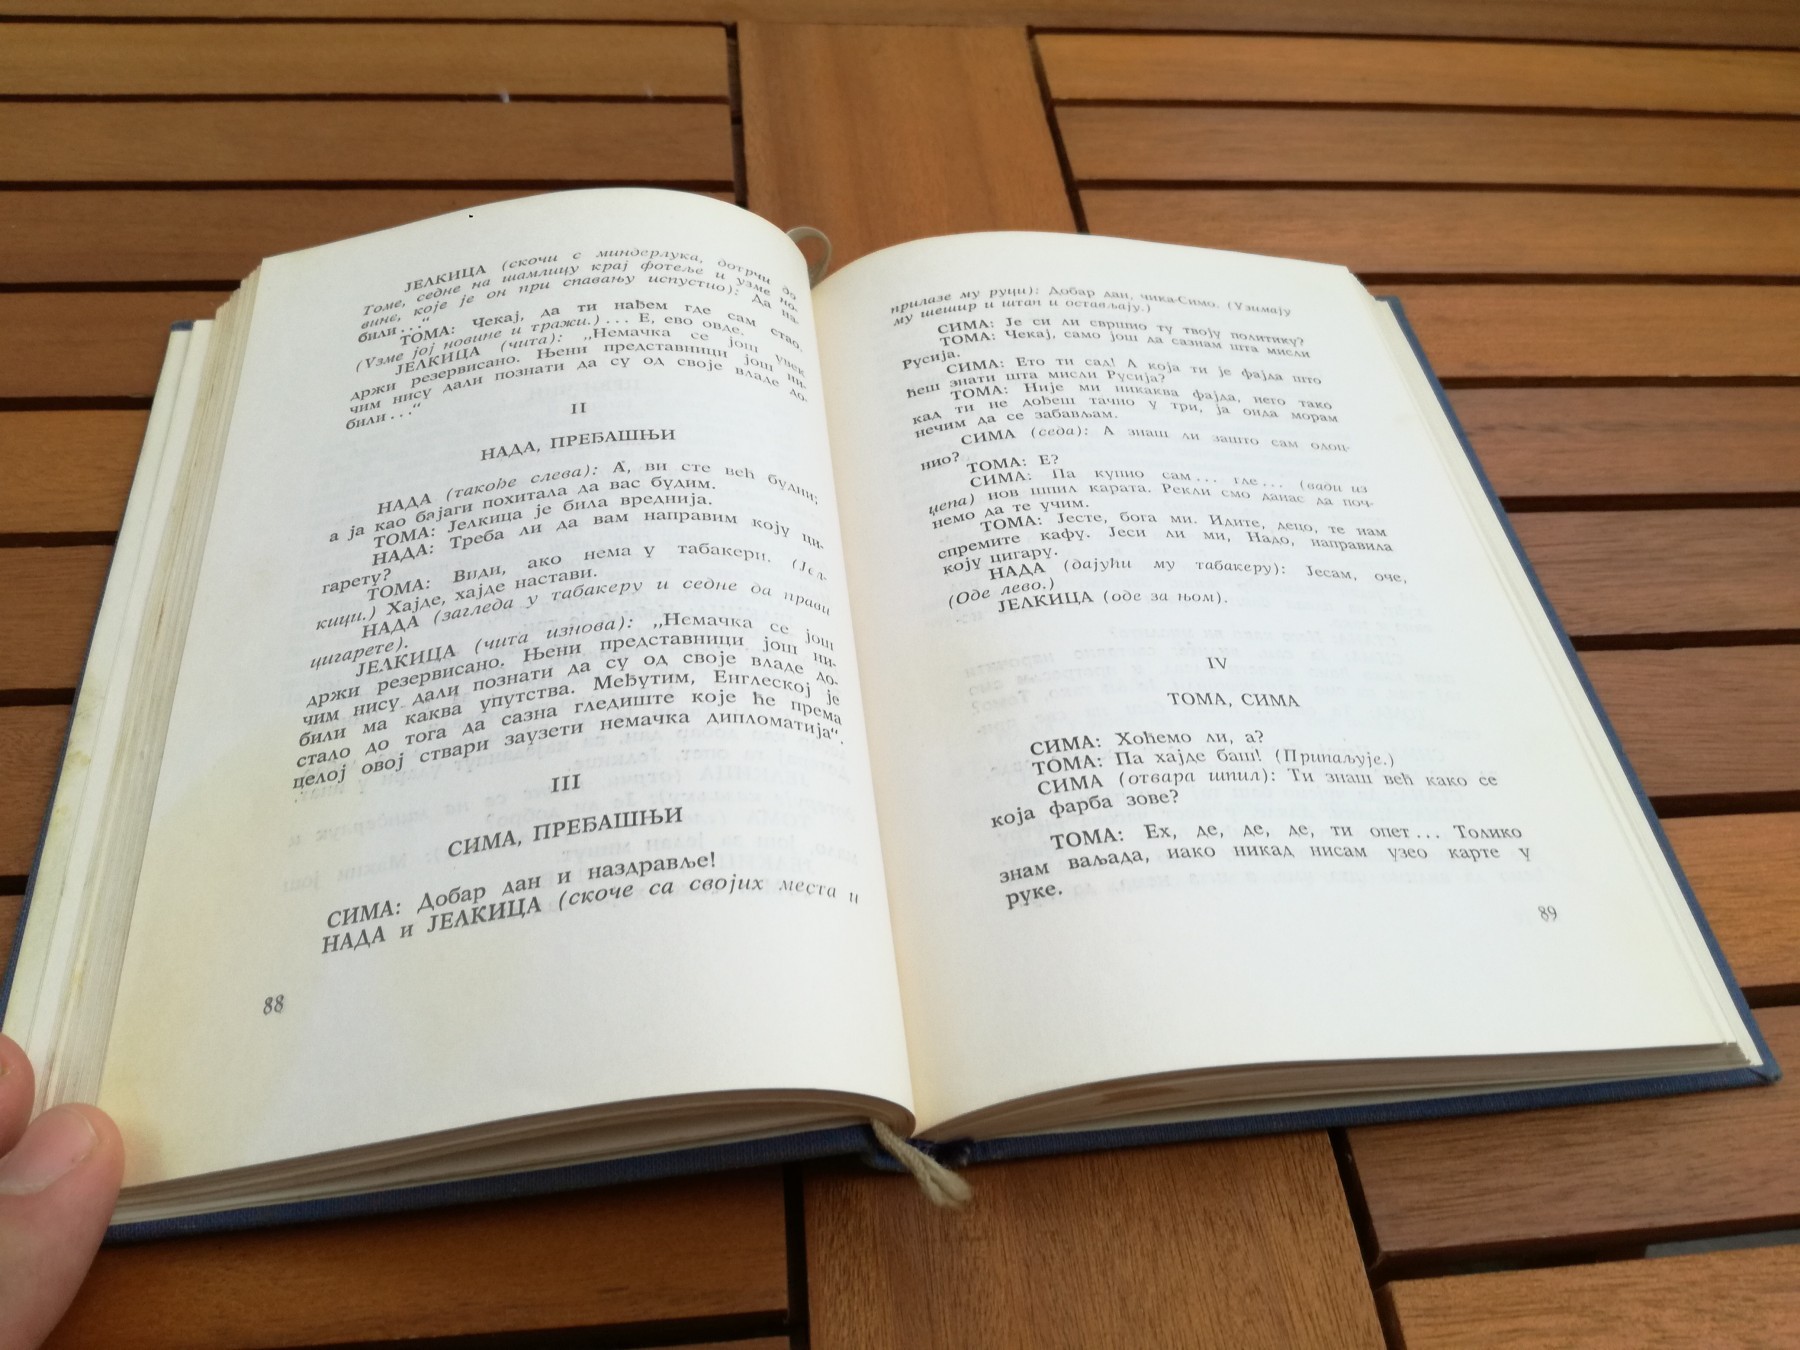 ЈЕЛКИЦА (скочи с миндерлука, дотрчи до
Томе, седне на шамлицу крај фотеље и узме но-
вине, које је он при спавању испустио): Да на-
били..."
ТОМА: Чекај, да ти нађем где сам стао.
(Узме јој новине и тражи.)... Е, ево овде.
ЈЕЛКИЦА (чита): „Немачка се још увек
држи резервисано. Њени представници још ни-
чим нису дали познати да су од своје владе до-
били..."
II
НАДА, ПРЕЂАШЊИ
НАДА (такође слева): А, ви сте већ будни;
а ја као бајаги похитала да вас будим.
ТОМА: Јелкица је била вреднија.
НАДА: Треба ли да вам направим коју ци-
гарету?
ТОМА: Види, ако нема у табакери. (Јел-
кици.) Хајде, хајде настави.
НАДА (загледа у табакеру и седне да прави
цигарете).
ЈЕЛКИЦА (чита изнова): „Немачка се још
држи резервисано. Њени представници још ни-
чим нису дали познати да су од своје владе до-
били ма каква упутства. Међутим, Енглеској је
стало до тога да сазна гледиште које ће према
целој овој ствари заузети немачка дипломатија".
III
СИМА, ПРЕЂАШЊИ
СИМА: Добар дан и наздравље!
НАДА и ЈЕЛКИЦА (скоче са својих места и
88
прилазе му руци): Добар дан, чика-Симо. (Узимају
му шешир и штап и остављају.)
СИМА: Је си ли свршио ту твоју политику?
ТОМА: Чекај, само још да сазнам шта мисли
Русија.
СИМА: Ето ти сад! А која ти је фајда што
ћеш знати шта мисли Русија?
ТОМА: Није ми никаква фајда, него тако
кад ти не дођеш тачно у три, ја онда морам
нечим да се забављам.
СИМА (седа): А знаш ли зашто сам одоц-
нио?
ТОМА: Е?
СИМА: Па купио сам... где... (вади из
џепа) нов шпил карата. Рекли смо данас да поч-
немо да те учим.
ТОМА: Јесте, бога ми. Идите, децо, те нам
спремите кафу. Јеси ли ми, Надо, направила
коју цигару.
НАДА (дајући му табакеру): Јесам, оче,
(Оде лево.)
ЈЕЛКИЦА (оде за њом).
IV
ТОМА, СИМА
СИМА: Хоћемо ли, а?
ТОМА: Па хајде баш! (Припаљује.)
СИМА (отвара шпил): Ти знаш већ како се
која фарба зове?
ТОМА: Ех, де, де, де, ти опет... Толико
знам ваљада, иако никад нисам узео карте у
руке.
89